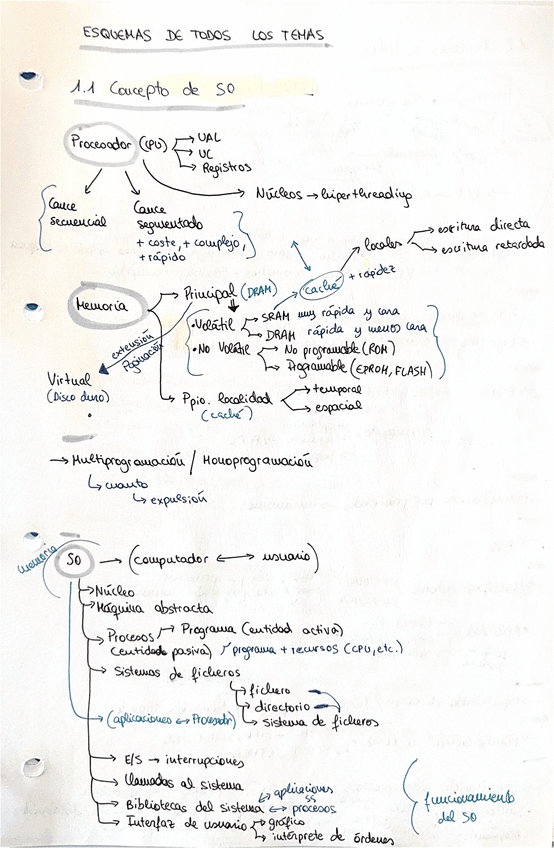 ESQUEMAS DE TODOS LOS TEMAS
1.1 Concepto de SO
Procesador (CPU) → UAL
→ UC
→ Registros
Núcleos → hiperthreading
Cauce secuencial
Cauce segmentado
+ coste, + complejo,
+ rápido
locales → escritura directa
→ escritura retardada
caché + rapidez
Memoria → Principal (DRAM)
• Volátil → SRAM muy rápida y cara
→ DRAM rápida y menos cara
• No Volátil → No programable (ROM)
→ Programable (EPROM, FLASH)
extensión
Paginación
Virtual
(Disco duro)
Ppio. localidad → temporal
→ espacial
(caché)
→ Multiprogramación / Monoprogramación
↳ cuanto
↳ expulsión
memoria
SO → (computador ↔ usuario)
→ Núcleo
→ Máquina abstracta
→ Procesos → Programa (entidad activa)
(entidad pasiva) programa + recursos (CPU, etc.)
→ Sistemas de ficheros
→ fichero
→ directorio
→ sistema de ficheros
→ (aplicaciones ↔ Procesador)
→ E/S → interrupciones
→ Llamadas al sistema
→ Bibliotecas del sistema ↔ aplicaciones
SS
↔ procesos
→ Interfaz de usuario → gráfico
→ intérprete de órdenes
funcionamiento
del SO